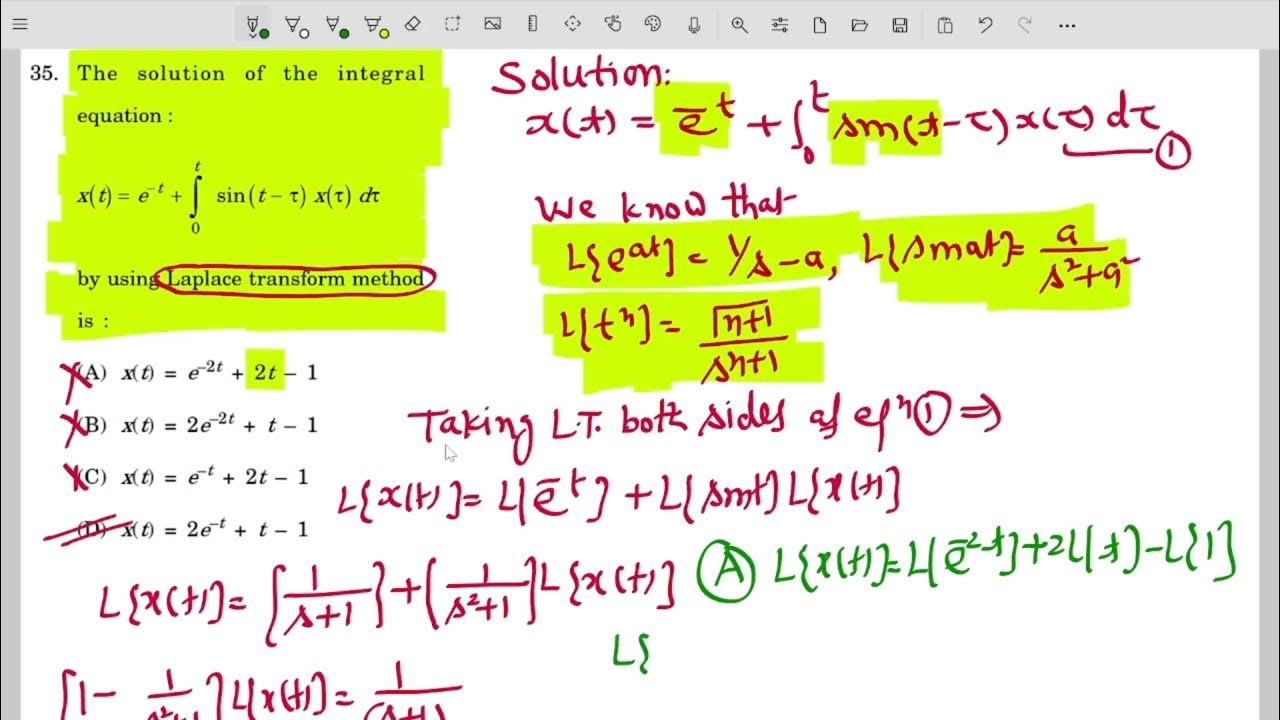 35. The solution of the integral
equation :
x(t) = e^{-t} + ∫_0^t sin(t − τ) x(τ) dτ
by using Laplace transform method
is :
(A) x(t) = e^{-2t} + 2t − 1
(B) x(t) = 2e^{-2t} + t − 1
(C) x(t) = e^{-t} + 2t − 1
(D) x(t) = 2e^{-t} + t − 1
Solution:
x(t) = e^{-t} + ∫_0^t sin(t−τ) x(τ) dτ ①
We know that
L{e^{at}} = 1/s−a, L{sin at} = a/(s²+a²)
L{t^n} = Γn+1/s^{n+1}
Taking L.T. both sides of eqn ① ⇒
L{x(t)} = L{e^{-t}} + L{sin t} L{x(t)}
L{x(t)} = {1/(s+1)} + {1/(s²+1)} L{x(t)}
[1 − 1/(s²+1)] L{x(t)} = 1/(s+1)
Ⓐ L{x(t)} = L{e^{-2t}} + 2L{t} − L{1}
L{